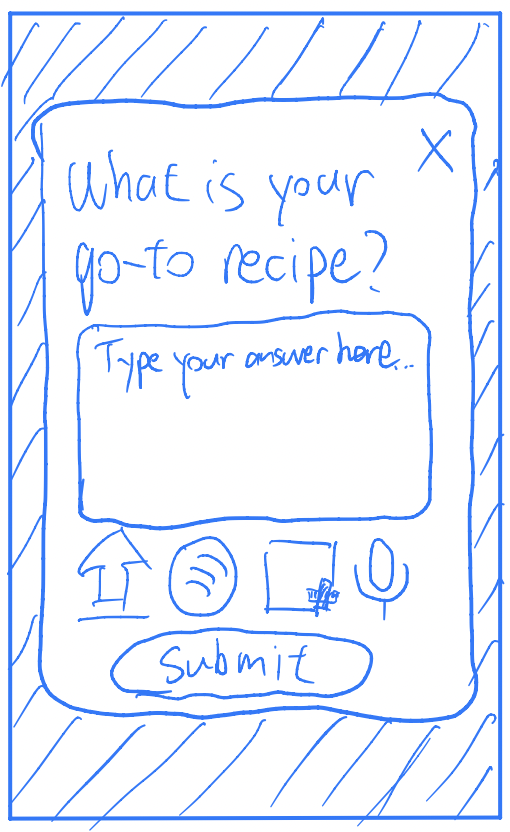 X
What is your
go-to recipe?
Type your answer here...
Submit